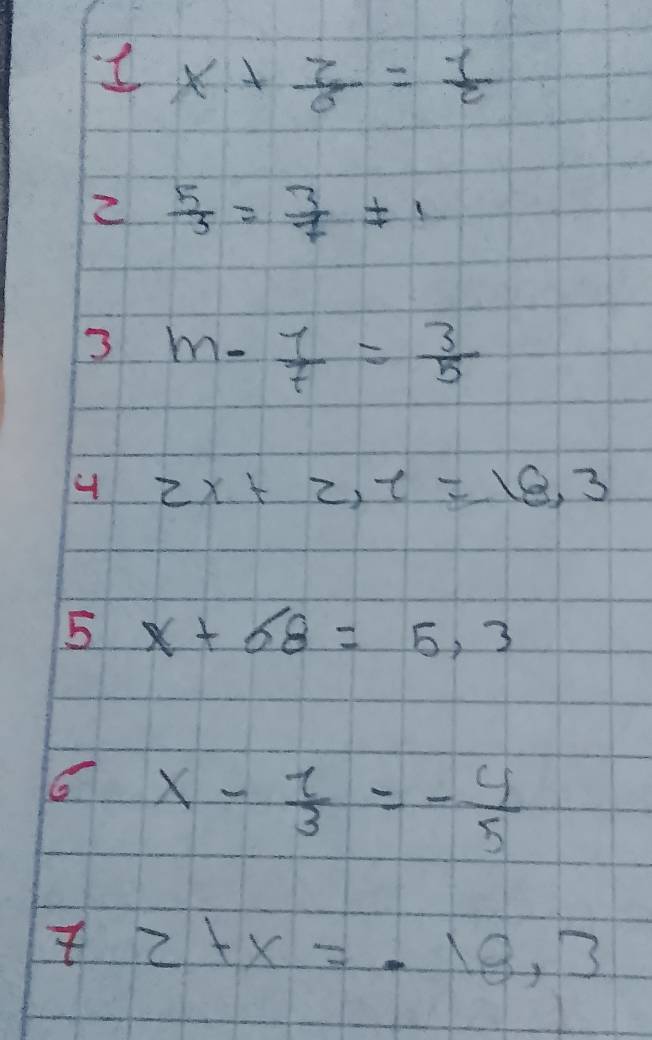 1 x + 2/6 = 1/6
2 5/3 = 3/7 +
3 m - 1/7 = 3/5
4 2x + 2,1 = 18,3
5 x + 68 = 5,3
6 x - 1/3 = - 4/5
7 2 + x = - 18,3